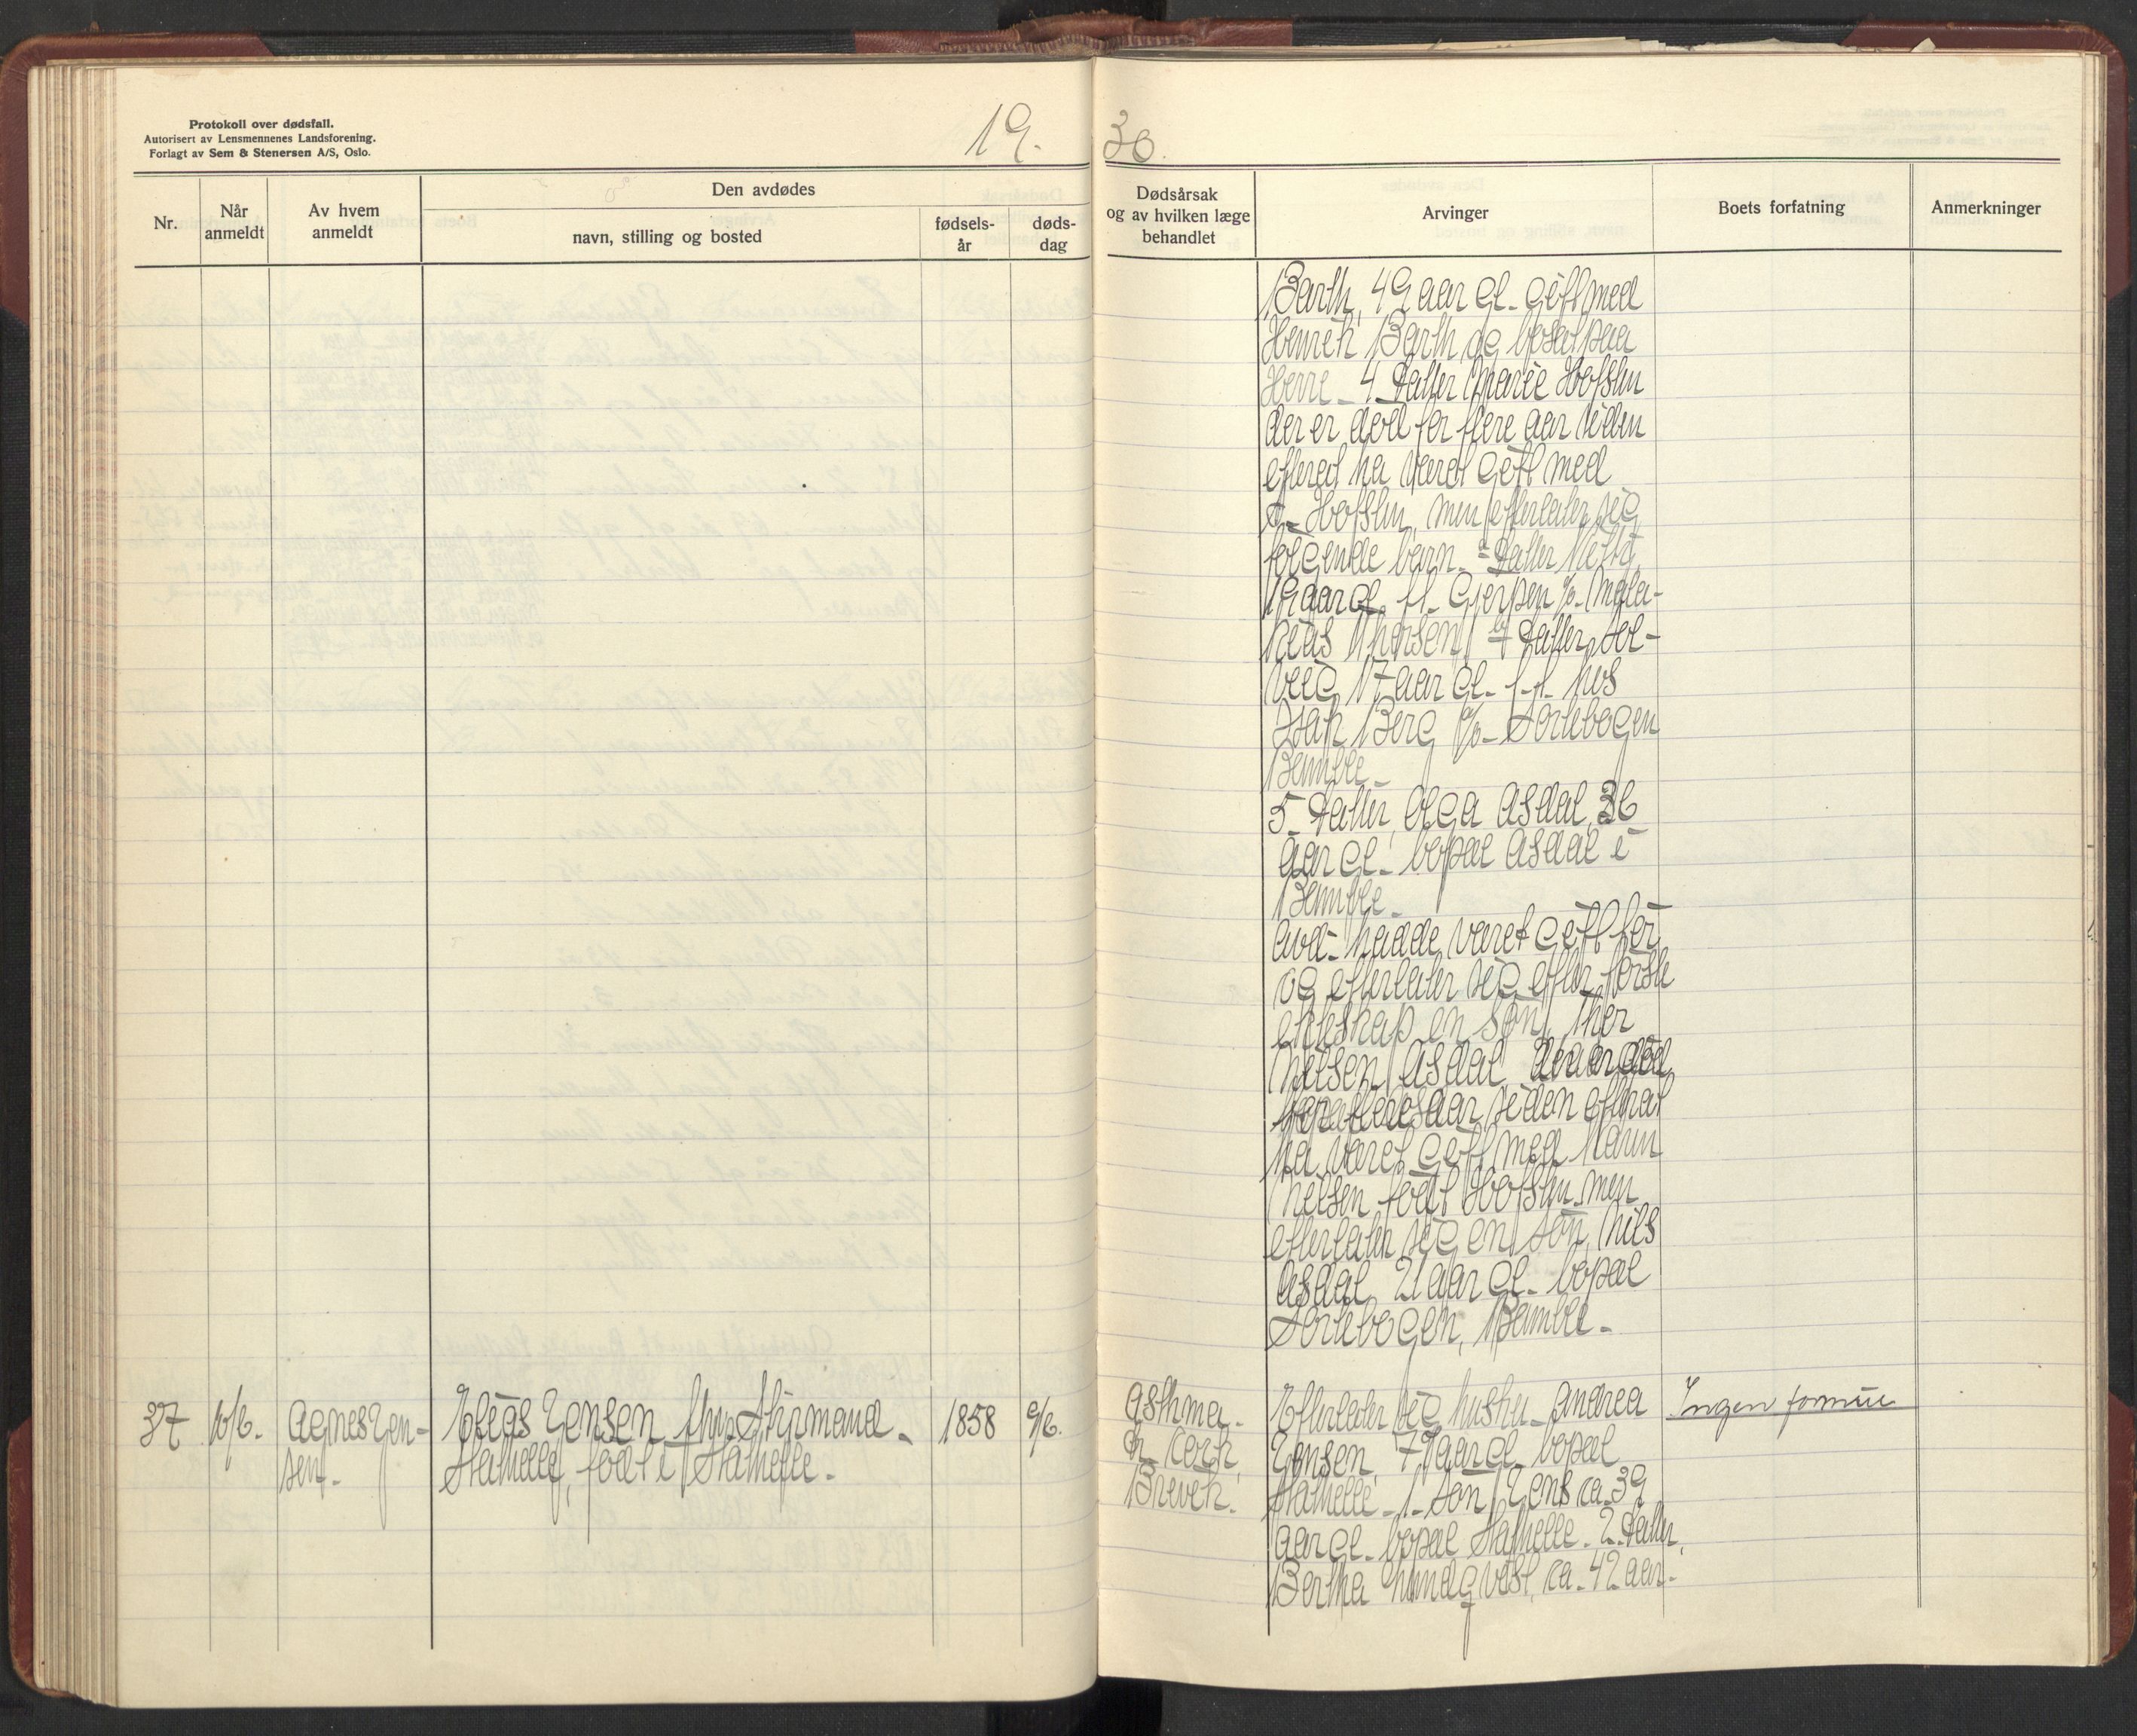 Protokoll over dødsfall.
Autorisert av Lensmennenes Landsforening.
Forlagt av Sem & Stenersen A/S, Oslo.
19. 30.
Nr.
Når anmeldt
Av hvem anmeldt
Den avdødes
navn, stilling og bosted
fødsels-
år
døds-
dag
Dødsårsak
og av hvilken læge
behandlet
Arvinger
Boets forfatning
Anmerkninger
Barth, 49 aar gl. gift med
Henrik Barth og bosat paa
Herre. 4 Datter Marie Hofslin
der er død for flere aar siden
efterat ha været gift med
Hofslin, men efterlater sig
følgende barn. a Datter
19 aar gl. f.t. Gjerpen p/a
b Datter Sol-
veig 17 aar gl. f.t. hos
Isak Berg p/a Stokkebogen
Bamble.
5 Datter Olga Asdal, 36
aar gl. bopæl Asdal i
Bamble.
Avd. hadde været gift før
og efterlater sig efter første
ekteskap en søn, Thor
Nilsen Asdal der er død
for flere aar siden efterat
ha været gift med Karin
Nilsen født Hofslin men
efterlater sig en søn Nils
Asdal 21 aar gl. bopæl
Stokkebogen, Bamble.
37
10/6.
Agnes Jen-
sen.
Elias Jensen, fhv. Styrmand.
Stathelle, født i Stathelle.
1858
9/6.
Asthma.
Dr. Cork,
Brevik.
Efterlater sig hustru Andrea
Jensen, 71 aar gl. bopæl
Stathelle. 1. Søn Jens ca. 39
aar gl. bopæl Stathelle. 2. Datter,
Bertha Lundqvist, ca. 42 aar.
Ingen formue